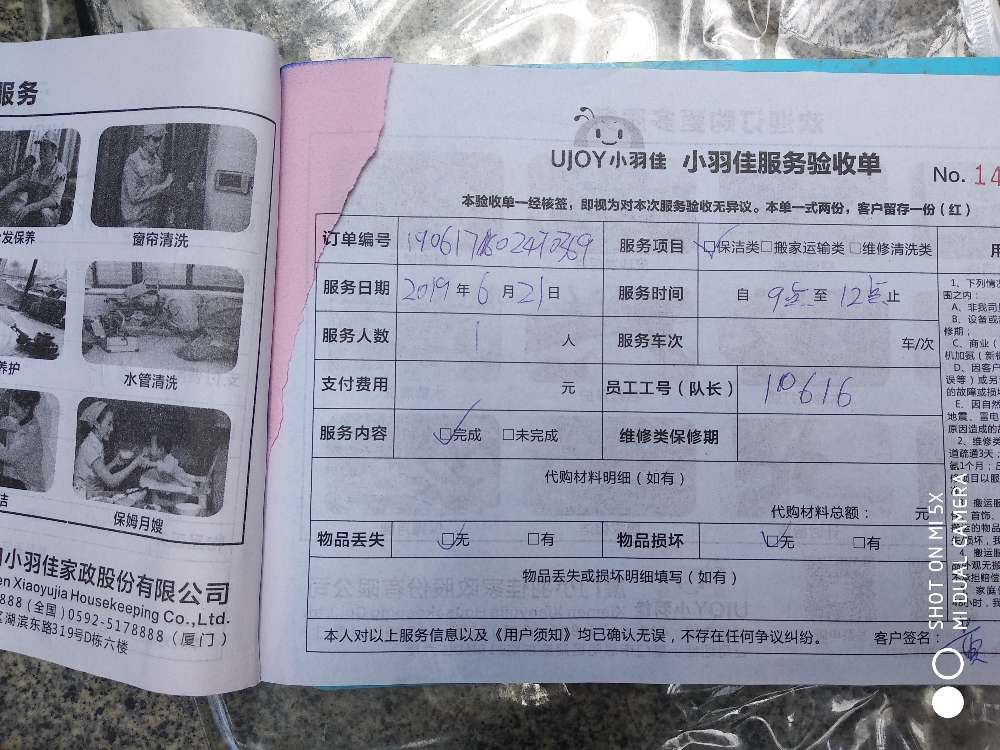 服务
发保养
窗帘清洗
养护
水管清洗
洁
保姆月嫂
小羽佳家政股份有限公司
en Xiaoyujia Housekeeping Co.,Ltd.
888(全国)0592-5178888(厦门)
区湖滨东路319号D栋六楼
UJOY小羽佳 小羽佳服务验收单
No. 14
本验收单一经核签,即视为对本次服务验收无异议。本单一式两份,客户留存一份(红)
订单编号 服务项目 □保洁类□搬家运输类□维修清洗类
服务日期 2019年6月21日 服务时间 自 9点至 12点止
服务人数 1 人 服务车次 车/次
支付费用 元 员工工号(队长) 10616
服务内容 □完成 □未完成 维修类保修期
代购材料明细(如有)
代购材料总额: 元
物品丢失 □无 □有 物品损坏 □无 □有
物品丢失或损坏明细填写(如有)
本人对以上服务信息以及《用户须知》均已确认无误,不存在任何争议纠纷。 客户签名:
用
1、下列情
围之内:
A、非我司
B、设备或
修期;
C、商业(
机加氨(新
D、因客户
误等)或另
的故障或损
E、因自然
地震、雷电
原因造成的
2、维修类
道疏通3天;
氨1个月;
SHOT ON MI 5X
MI DUAL CAMERA